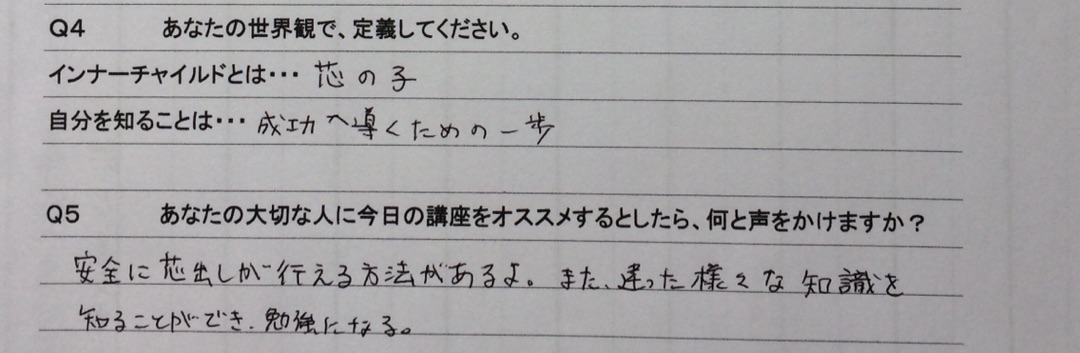 Q4 あなたの世界観で、定義してください。
インナーチャイルドとは・・・ 芯の子
自分を知ることは・・・ 成功へ導くための一歩
Q5 あなたの大切な人に今日の講座をオススメするとしたら、何と声をかけますか？
安全に芯出しが行える方法があるよ。また、違った様々な知識を
知ることができ、勉強になる。